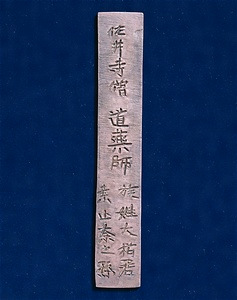 佐井寺僧
道藥師
族姓大楢君
素止奈之孫